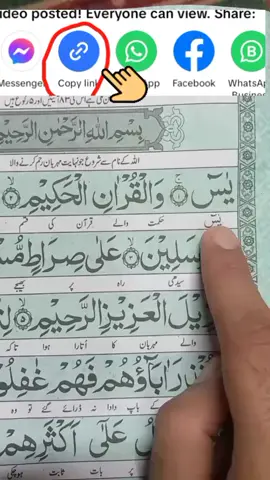 ideo posted! Everyone can view. Share:
Messenge
Copy link
pp
Facebook
WhatsA
Business
بِسْمِ اللهِ الرَّحْمٰنِ الرَّحِيْمِ
اللہ کے نام سے شروع جو نہایت مہربان رحم والا
يٰسٓ ۚ وَالْقُرْاٰنِ الْحَكِيْمِ ۙ
یٰسٓ حکمت والے قرآن کی قسم
سَلِيْنَ ۙ عَلٰى صِرَاطٍ مُّسْ
سیدھی راہ پر بھیجے
يْلَ الْعَزِيْزِ الرَّحِيْمِ ۙ لِتُ
والے مہربان کا اُتارا ہوا تاکہ
نْذِرَ اٰبَآؤُهُمْ فَهُمْ غٰفِلُوْ
کے باپ دادا نہ ڈرائے گئے تو وہ
لُ عَلٰٓى اَكْثَرِهِمْ
پر بات ثابت ہوچکی